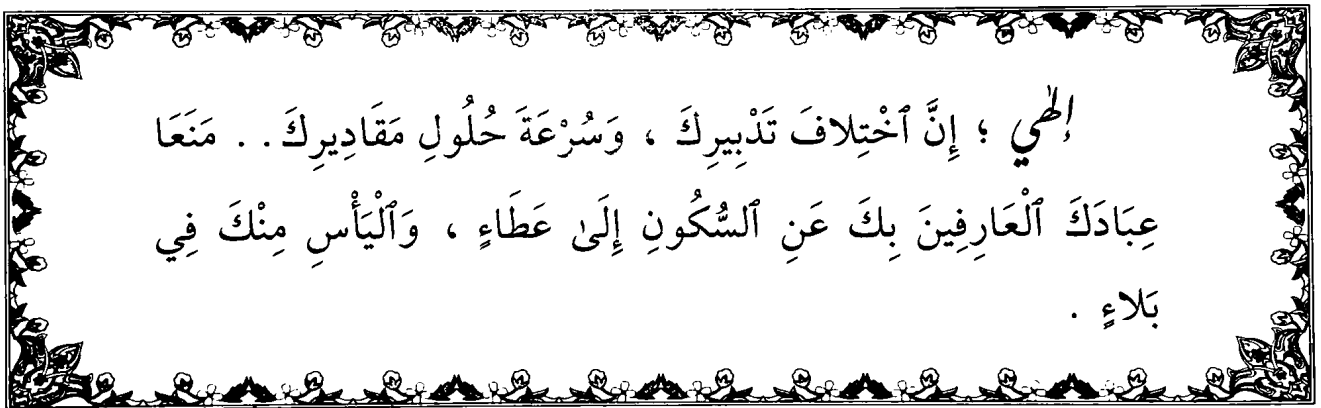 إِلٰهِي ؛ إِنَّ ٱخْتِلافَ تَدْبِيرِكَ ، وَسُرْعَةَ حُلُولِ مَقَادِيرِكَ . . مَنَعَا
عِبَادَكَ ٱلْعَارِفِينَ بِكَ عَنِ ٱلسُّكُونِ إِلَىٰ عَطَاءٍ ، وَٱلْيَأْسِ مِنْكَ فِي
بَلاءٍ .